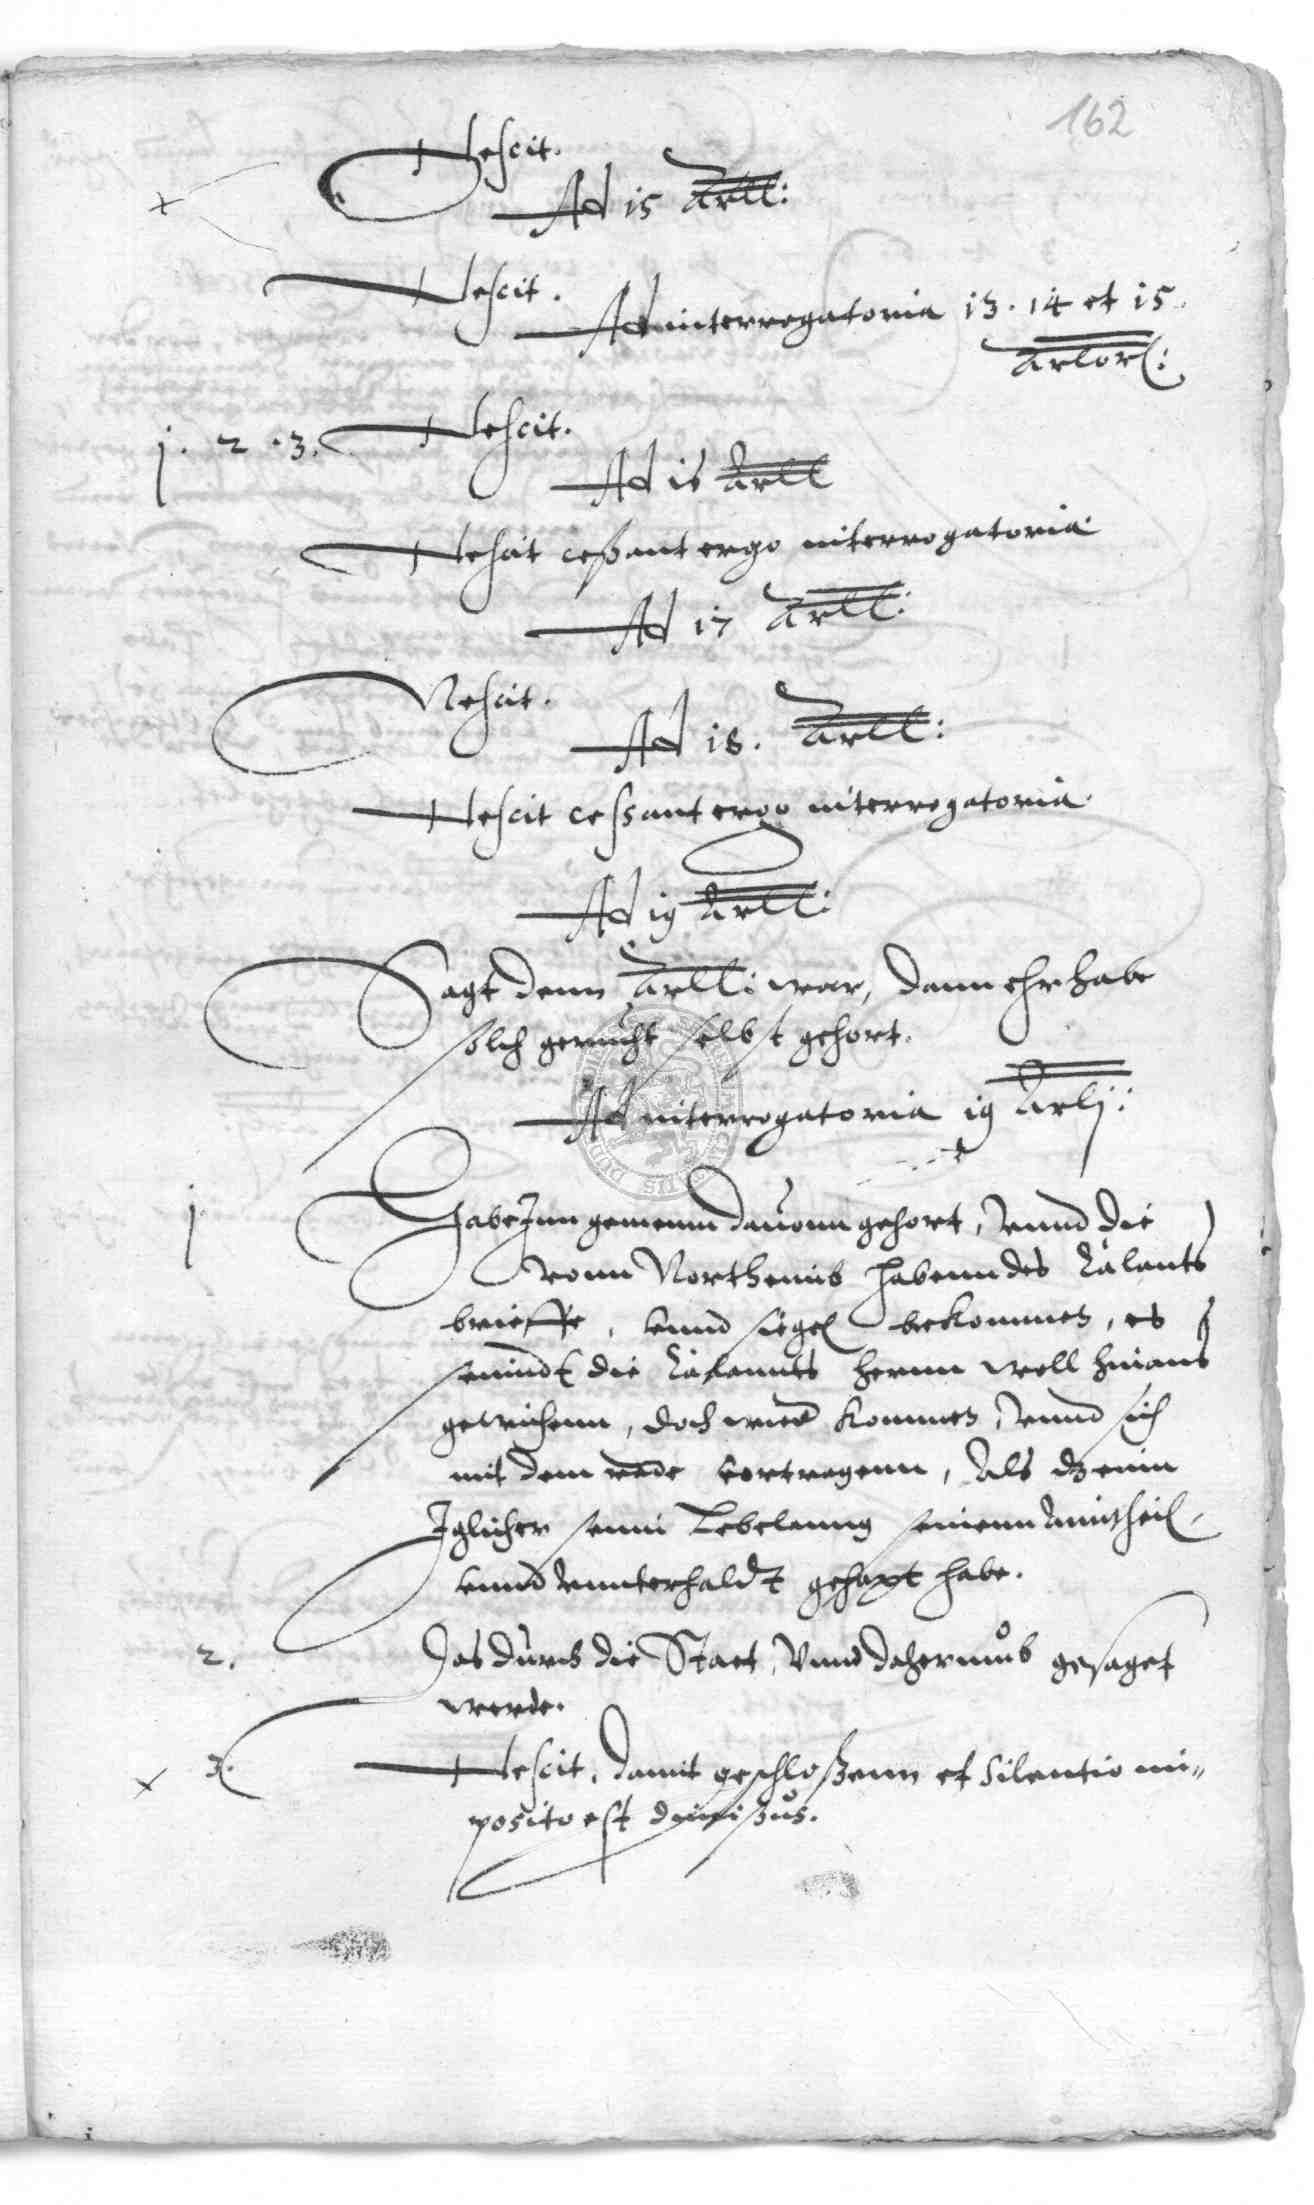 162
Nescit.
Ad 15 Artl:
Nescit.
Ad interrogatoria 13. 14 et 15.
Artlor:
j. 2. 3. Nescit.
Ad 16 Artl
Nescit cessant ergo interrogatoria
Ad 17 Artl:
Nescit.
Ad 18. Artl:
Nescit cessant ergo interrogatoria.
Ad 19 Artl:
Sagt denn Artll: war, dann ehr habe
solch gerucht selbst gehort.
Ad interrogatoria 19 Artlj:
j. Habe Inn gemeinn dauonn gehort, vnnd die
vonn Northeimb habenn des Calants
brieffe, vnnd siegel bekommen, es
seindt die Calannts hernn woll hinaus
gewichenn, doch wied kommen, vnnd sich
mit dem rade vortragenn, Als dz einn
Iglicher seinn Lebelanng seinenn Anntheil,
vnnd vnnterhaldt gehapt habe.
2. Das durch die Stadt, vnnd daherumb gesaget
werde.
3. Nescit, damit geschloßenn et silentio im-
posito est dimißus.